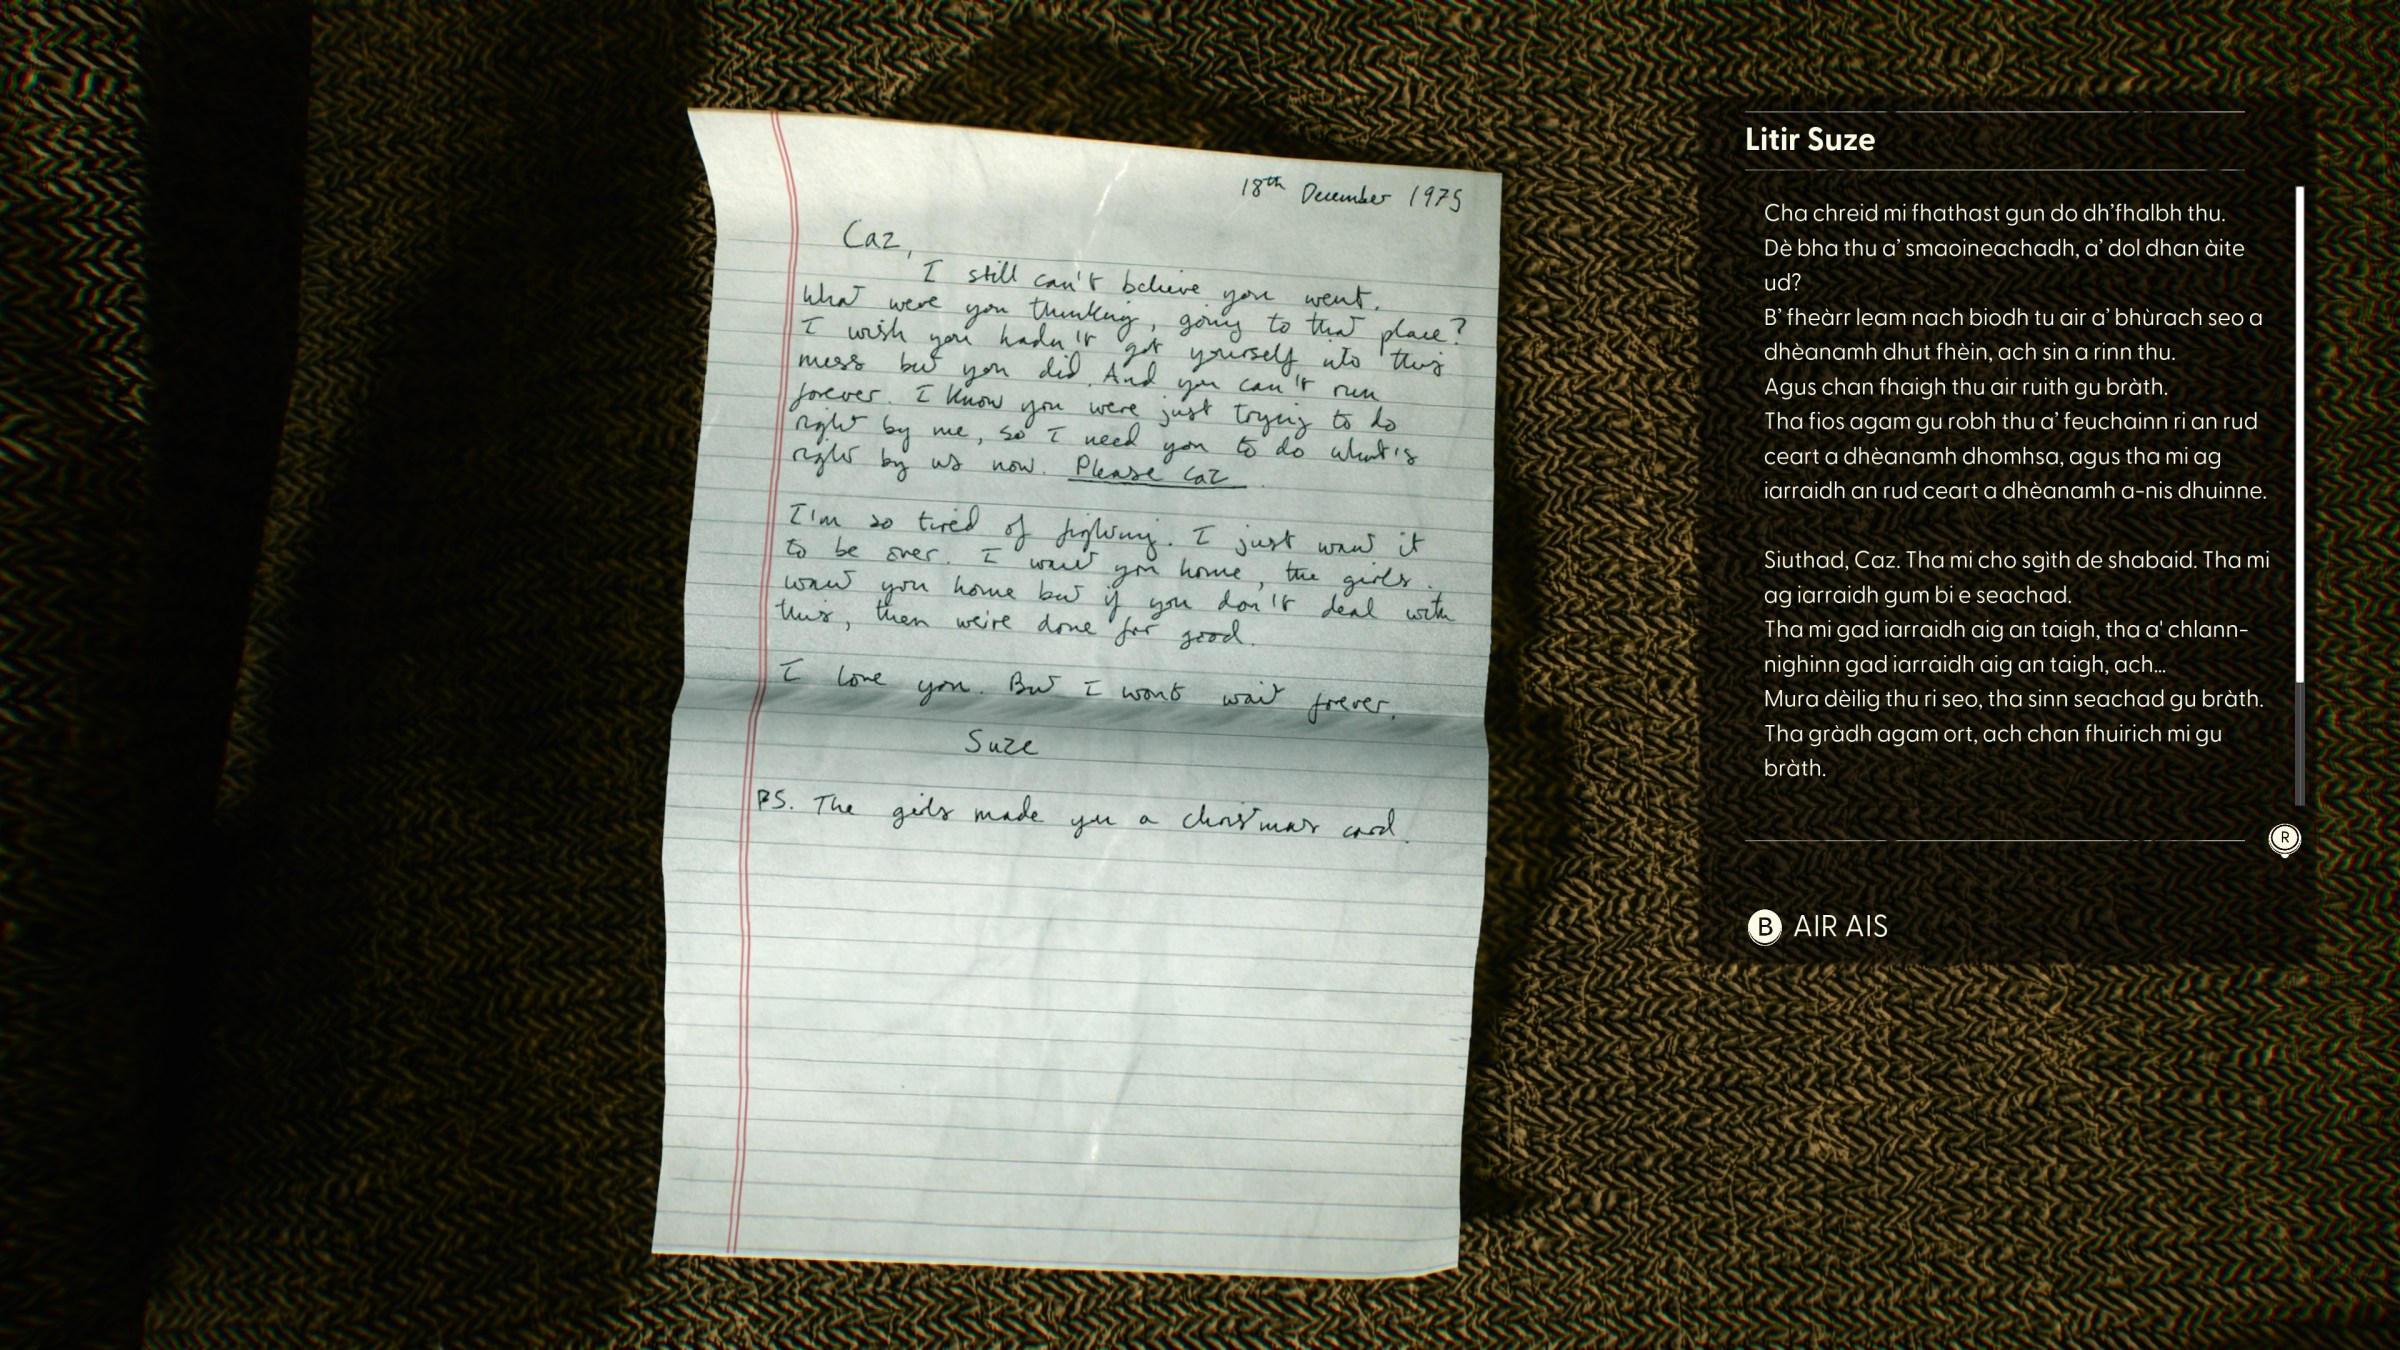 18th December 1975
Caz,
I still can't believe you went.
What were you thinking, going to that place?
I wish you hadn't got yourself into this
mess but you did. And you can't run
forever. I know you were just trying to do
right by me, so I need you to do what's
right by us now. Please Caz.
I'm so tired of fighting. I just want it
to be over. I want you home, the girls
want you home but if you don't deal with
this, then we're done for good.
I love you. But I wont wait forever.
Suze
P.S. The girls made you a christmas card.
Litir Suze
Cha chreid mi fhathast gun do dh'fhalbh thu.
Dè bha thu a' smaoineachadh, a' dol dhan àite
ud?
B' fheàrr leam nach biodh tu air a' bhùrach seo a
dhèanamh dhut fhèin, ach sin a rinn thu.
Agus chan fhaigh thu air ruith gu bràth.
Tha fios agam gu robh thu a' feuchainn ri an rud
ceart a dhèanamh dhomhsa, agus tha mi ag
iarraidh an rud ceart a dhèanamh a-nis dhuinne.
Siuthad, Caz. Tha mi cho sgìth de shabaid. Tha mi
ag iarraidh gum bi e seachad.
Tha mi gad iarraidh aig an taigh, tha a' chlann-
nighinn gad iarraidh aig an taigh, ach...
Mura dèilig thu ri seo, tha sinn seachad gu bràth.
Tha gràdh agam ort, ach chan fhuirich mi gu
bràth.
R
B AIR AIS